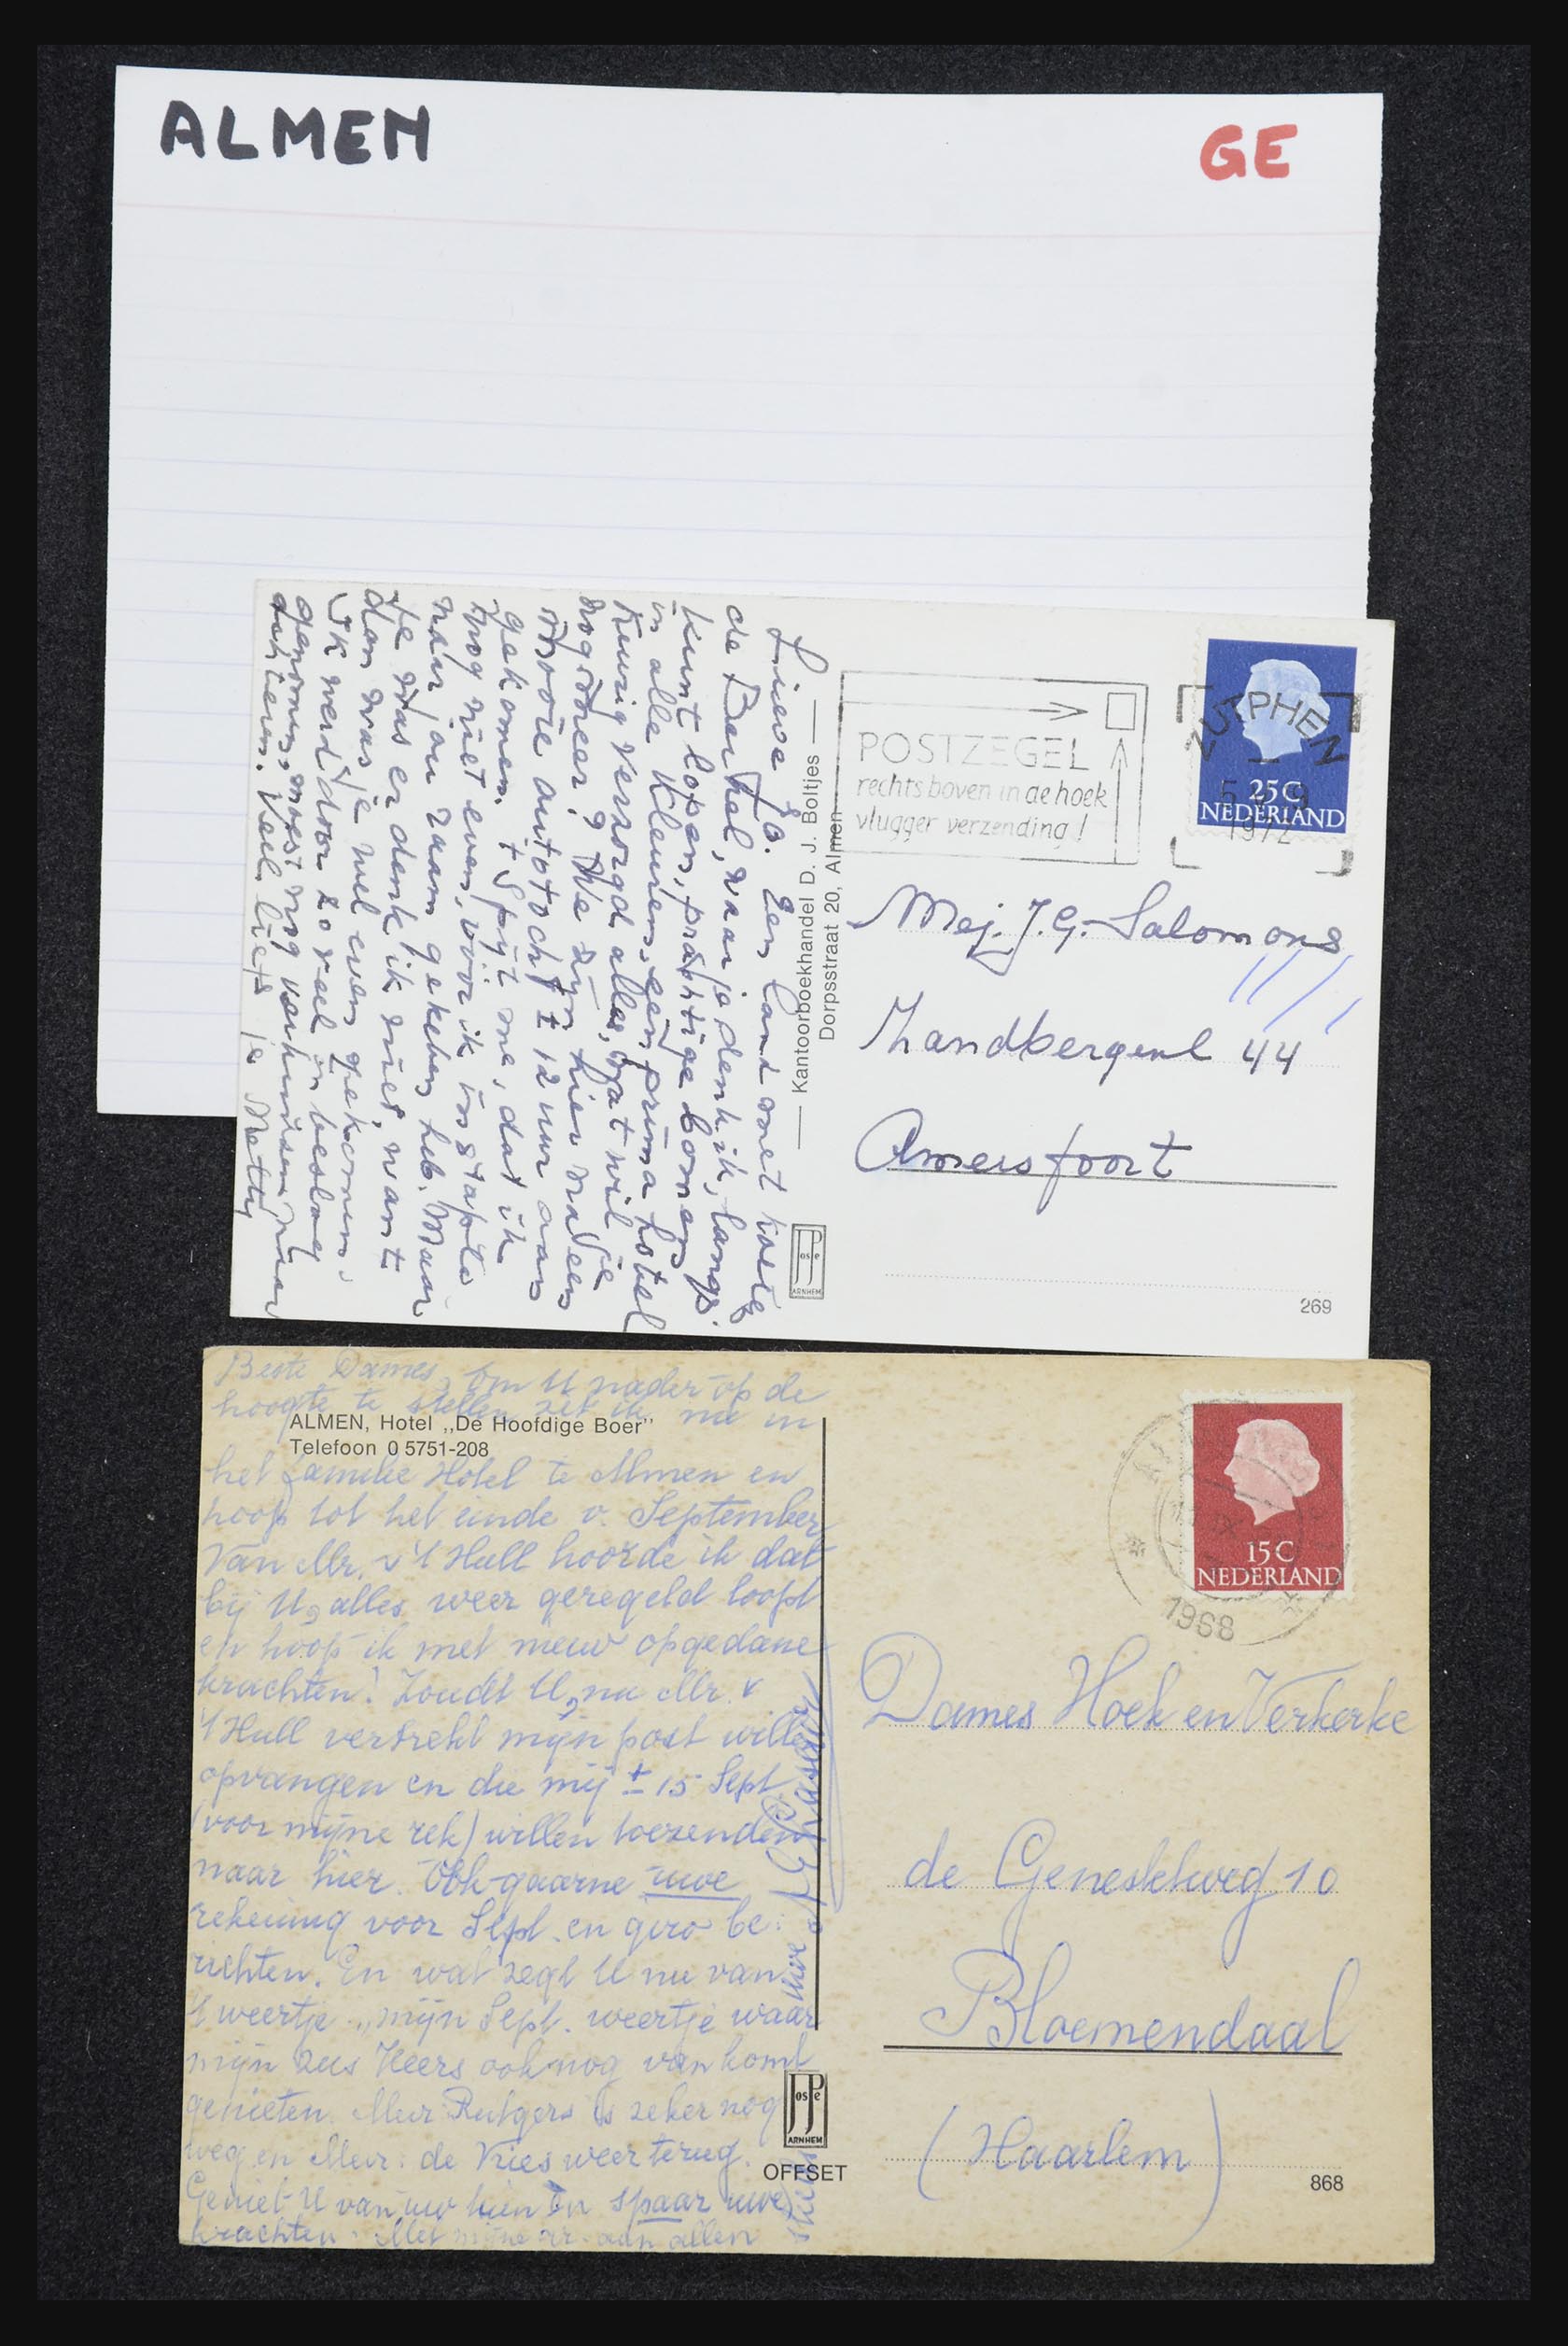 ALMEN
GE
Lieve Jo. Een land met kastelen
de Berkel, waar je denk ik, langs
kunt lopen, prachtige bomen
in alle kleuren, een prima hotel
keurig verzorgd alles, wat wil je
nog meer? We zijn hier na een
mooie autotocht ± 12 uur aan
gekomen. 't Spijt me, dat ik
nog niet even, vóór ik instapte
naar jou raam gekeken heb. Maar
Je was er denk ik niet, want
dan was je wel even gekomen.
Ik werd door zoveel in beslag
genomen, moest nog
Veel liefs je Netty
Kantoorboekhandel D. J. Boltjes
Dorpsstraat 20, Almen
JosPe
ARNHEM
POSTZEGEL
rechts boven in de hoek
vlugger verzending!
ZUTPHEN
1972
25 C
NEDERLAND
Mej. J.G. Salomons
Zandbergenl 44
Amersfoort
269
Beste Dames, Om U nader op de
hoogte te stellen zit ik nu in
ALMEN, Hotel ,,De Hoofdige Boer''
Telefoon 0 5751-208
het familie Hotel te Almen en
hoop tot het einde v. September
Van Mr. v 't Hull hoorde ik dat
bij U, alles weer geregeld loopt
en hoop ik met nieuw opgedane
krachten! Zoudt U, nu Mr. v
't Hull vertrekt mijn post willen
opvangen en die mij ± 15 Sept
(voor mijne rek) willen toezenden
naar hier. Ook gaarne uwe
rekening voor Sept. en giro be-
richten. En wat zegt U nu van
't weertje, mijn Sept. weertje waar
mijn zus Heers ook nog van komt
genieten. Mevr. Rutgers is zeker nog
weg en Mevr. de Vries weer terug.
Geniet U van uw tuin en spaar uwe
krachten. Met mijne gr. aan allen
uwe
JosPe
ARNHEM
OFFSET
1968
15 C
NEDERLAND
Dames Hoek en Verkerke
de Genestetweg 10
Bloemendaal
(Haarlem)
868